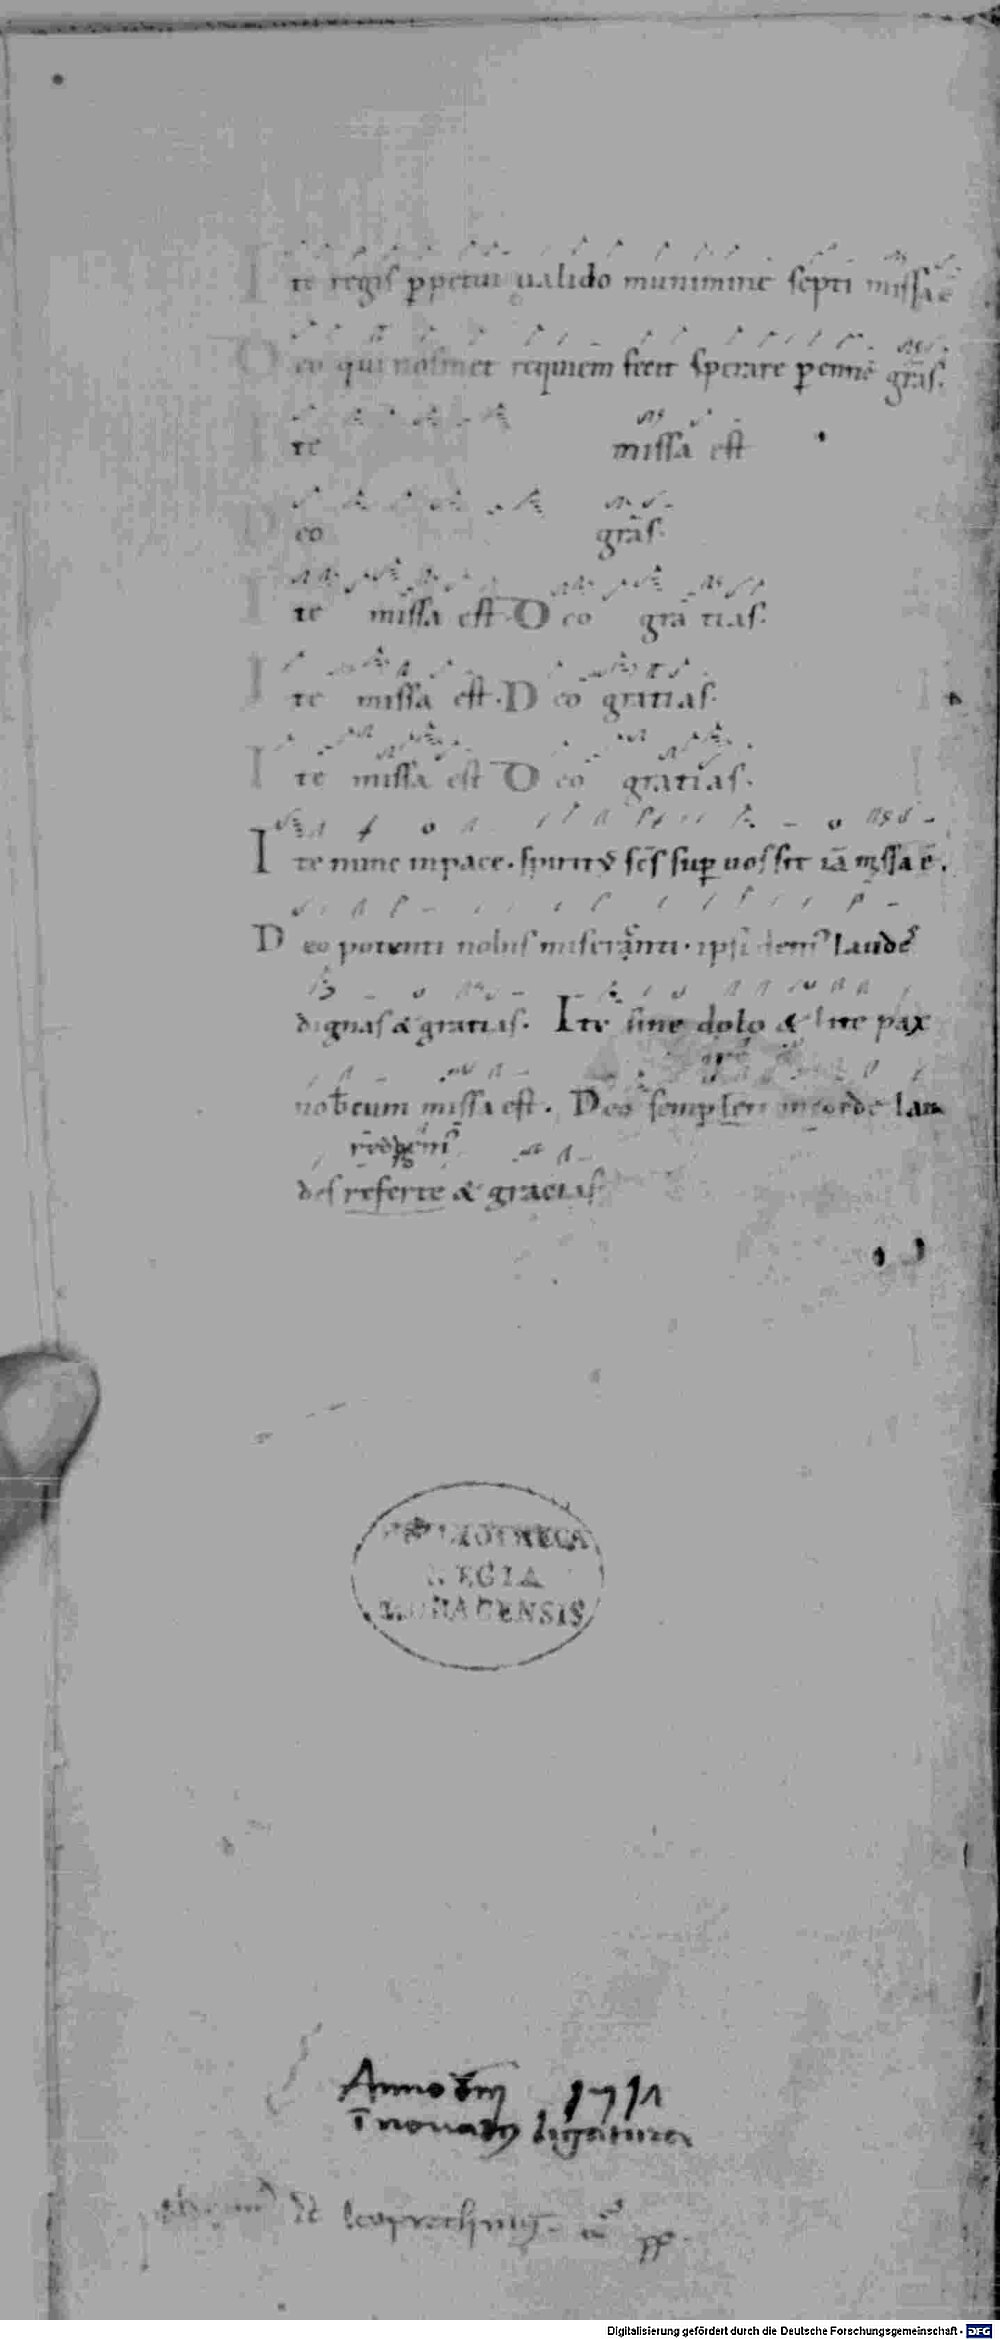 Ite regiſ ꝑpetui ualido munimine ſepti miſſa ē
Deo qui noſmet requiem fecit ſperare ꝑennē gr̄aſ.
Ite miſſa eſt
Deo gr̄aſ.
Ite miſſa eſt. Deo gratiaſ.
Ite miſſa eſt. Deo gratiaſ.
Ite miſſa eſt Deo gratiaſ.
Ite nunc in pace. ſpirit᷒ ſc̄ſ ſuꝑ uoſ ſit iā miſſa ē.
Deo potenti nobiſ miſeranti. ipſi laudeſ
dignaſ & gratiaſ. Ite ſine dolo & lite pax
nobcum miſſa eſt. Deo ſemper in corde lau
deſ referte & gratiaſ
BIBLIOTHECA
REGIA
MONACENSIS
Anno
ligatura
Digitalisierung gefördert durch die Deutsche Forschungsgemeinschaft - DFG